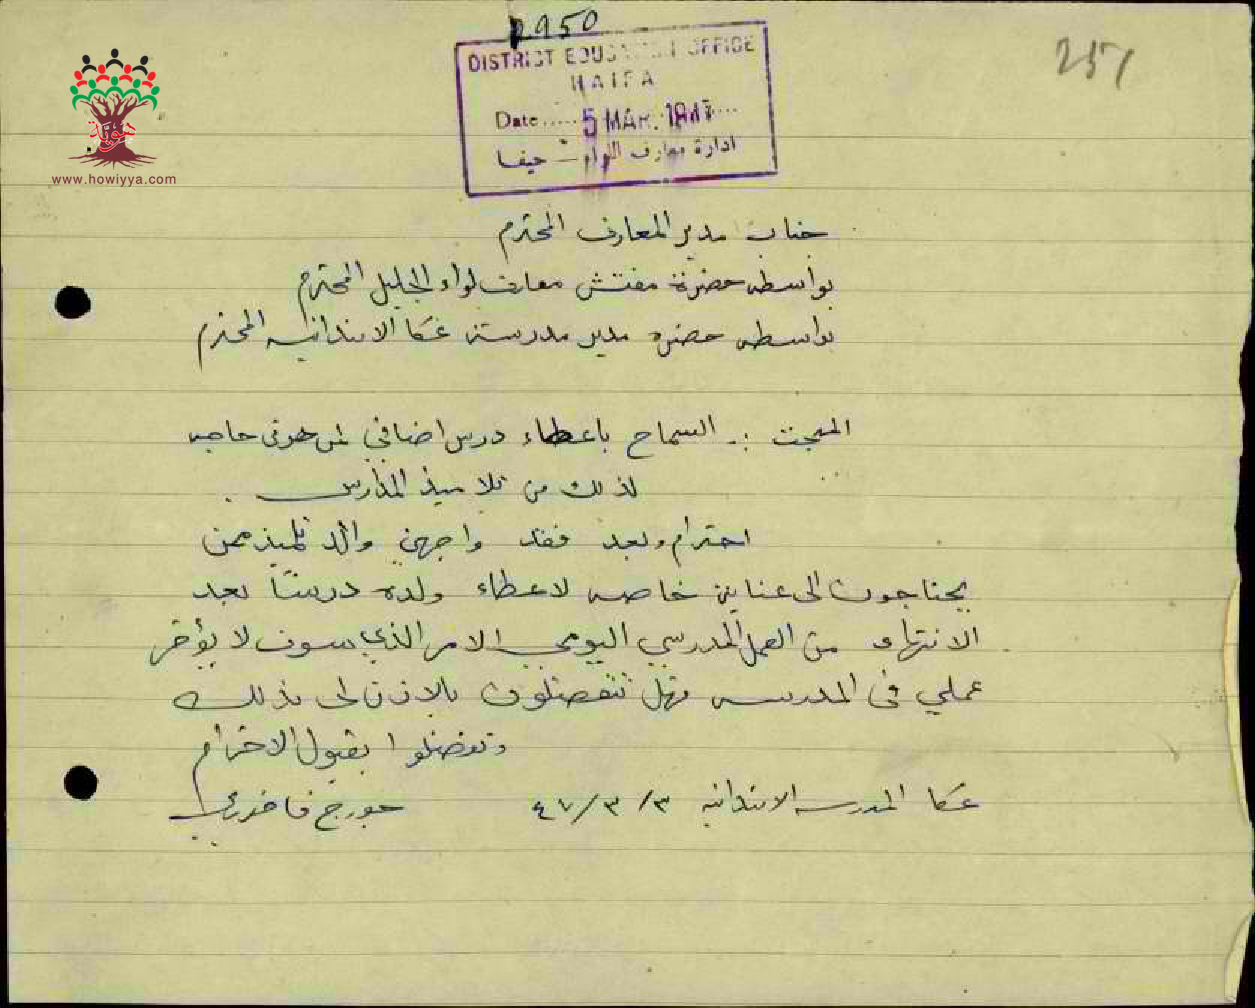 2950
251
DISTRICT EDUCATION OFFICE
HAIFA
Date ..... 5 MAR. 1947 ....
ادارة معارف اللواء - حيفا
هوية
www.howiyya.com
جناب مدير المعارف المحترم
بواسطه حضرة مفتش معارف لواء الجليل المحترم
بواسطه حضرة مدير مدرسة عكا الابتدائيه المحترم
المبحث :. السماح باعطاء درس اضافي لمن هو في حاجه
لذلك من تلاميذ المدارس .
احترام وبعد فقد واجهني والد تلميذ ممن
يحتاجون الى عناية خاصه لاعطاء ولده درسًا بعد
الانتهاء من العمل المدرسي اليومي الامر الذي سوف لا يؤخر
عملي في المدرسه فهل تتفضلون بالاذن لي بذلك
وتفضلوا بقبول الاحترام
عكا المدرسه الابتدائيه ٣/٣/٤٧ جورج فاخوري